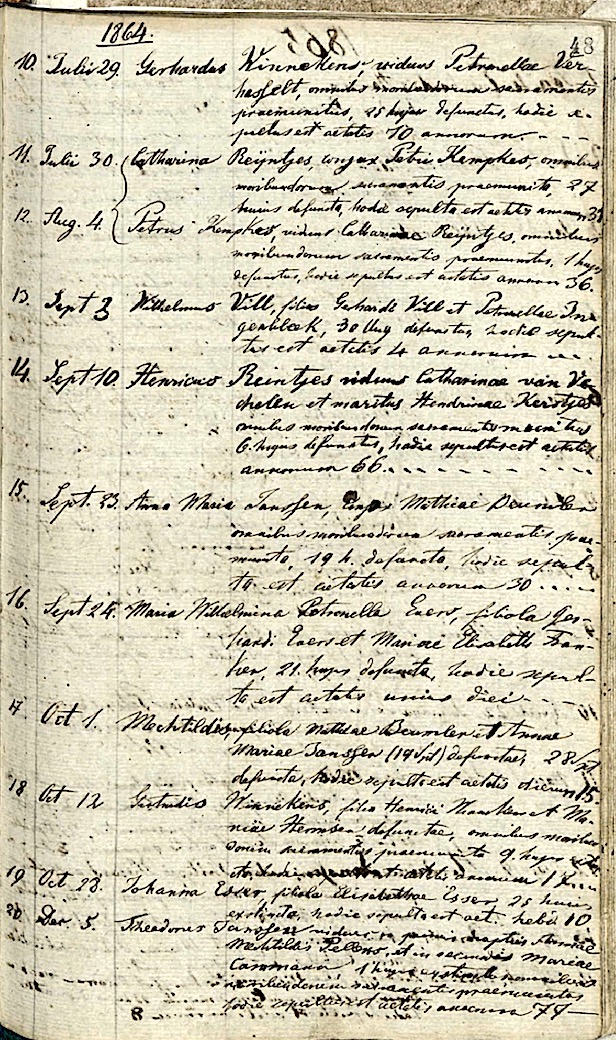 1864.
48
10. Julii 29. Gerhardus Winnekens, viduus Petronellae Ver-
hasselt, omnibus moribundorum sacramentis
praemunitus, 25 hujus defunctus, hodie se-
pultus est aetatis 70 annorum - - -
11. Julii 30. Catharina Reijntjes, conjux Petri Kempkes, omnibus
moribundorum sacramentis praemunita, 27
hujus defuncta, hodie sepulta est aetatis annorum 3
12. Aug. 4. Petrus Kempkes, viduus Catharinae Reijntjes, omnibus
moribundorum sacramentis praemunitus, 1 hujus
defunctus, hodie sepultus est aetatis annorum 36.
13. Sept 3 Wilhelmus Vill, filius Gerhardi Vill et Petronellae In-
genbleek, 30 Aug defunctus, hodie sepul-
tus est aetatis 4 annorum - - -
14. Sept 10. Henricus Reintjes viduus Catharinae van
chelen et maritus Hendrinae Kerstjes
omnibus moribundorum sacramentis munitus
6. hujus defunctus, hodie sepultus est aetatis
annorum 66. - - - - - -
15. Sept. 23. Anna Maria Janssen, conjux Mathiae Beumeler
omnibus moribundorum sacramentis prae-
munita, 19 h. defuncta, hodie sepul-
ta est aetatis annorum 30 - - - -
16. Sept 24. Maria Wilhelmina Petronella Evers, filiola Ger-
hardi Evers et Mariae Elisabeth Fran-
ken, 21. hujus defuncta, hodie sepul-
ta est aetatis unius diei - - -
17 Oct 1. Mechtildis filiola Mathiae Beumeler et Annae
Mariae Janssen (19 Sept) defunctae, 28 Sept
defuncta, hodie sepulta est aetatis dierum 15
18 Oct 12 Gertrudis Winnekens, filia Henrici et Ma-
riae Hermsen defunctae, omnibus moribun-
dorum sacramentis praemunita 9 hujus
hodie aetatis annorum
19 Oct 28. Johanna Esser filiola Elisabethae Esser, 25 hujus
extincta, hodie sepulta est aet. hebd 10
20. Dec 5. Theodorus Janssen viduus in primis
Mechtildis Pellens, et in secundis Mariae
Cammann, 1 hujus
moribundorum sacramentis praemunitus
hodie sepultus est aetatis annorum 77
8